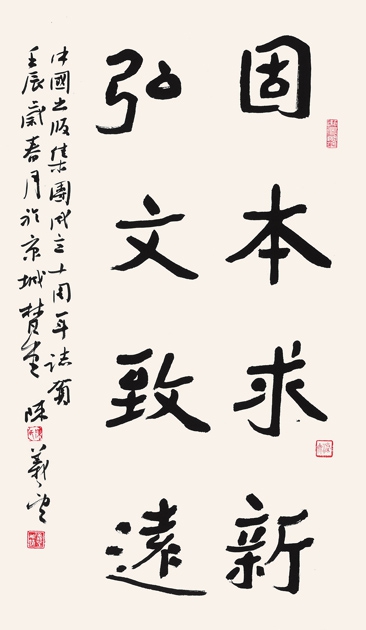 固本求新
弘文致远
中國出版集團成立十周年誌賀
壬辰歲春月於京城 陳義